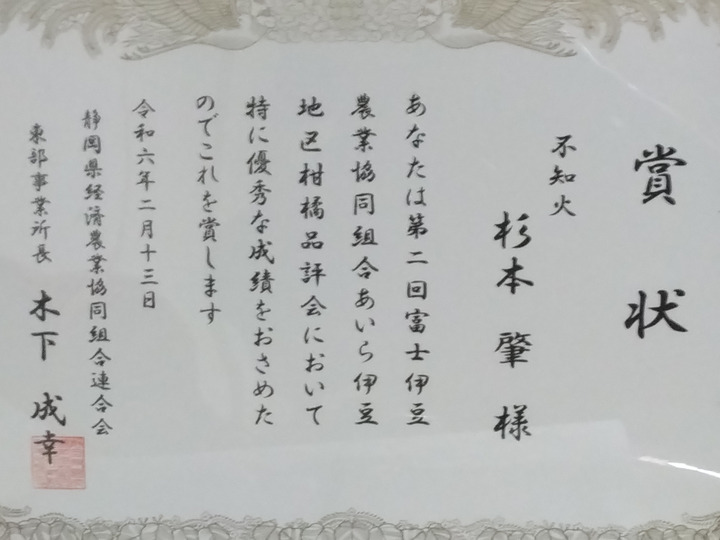 賞状
不知火
杉本 肇 様
あなたは第二回富士伊豆
農業協同組合あいら伊豆
地区柑橘品評会において
特に優秀な成績をおさめた
のでこれを賞します
令和六年二月十三日
静岡県経済農業協同組合連合会
東部事業所長 木下 成幸